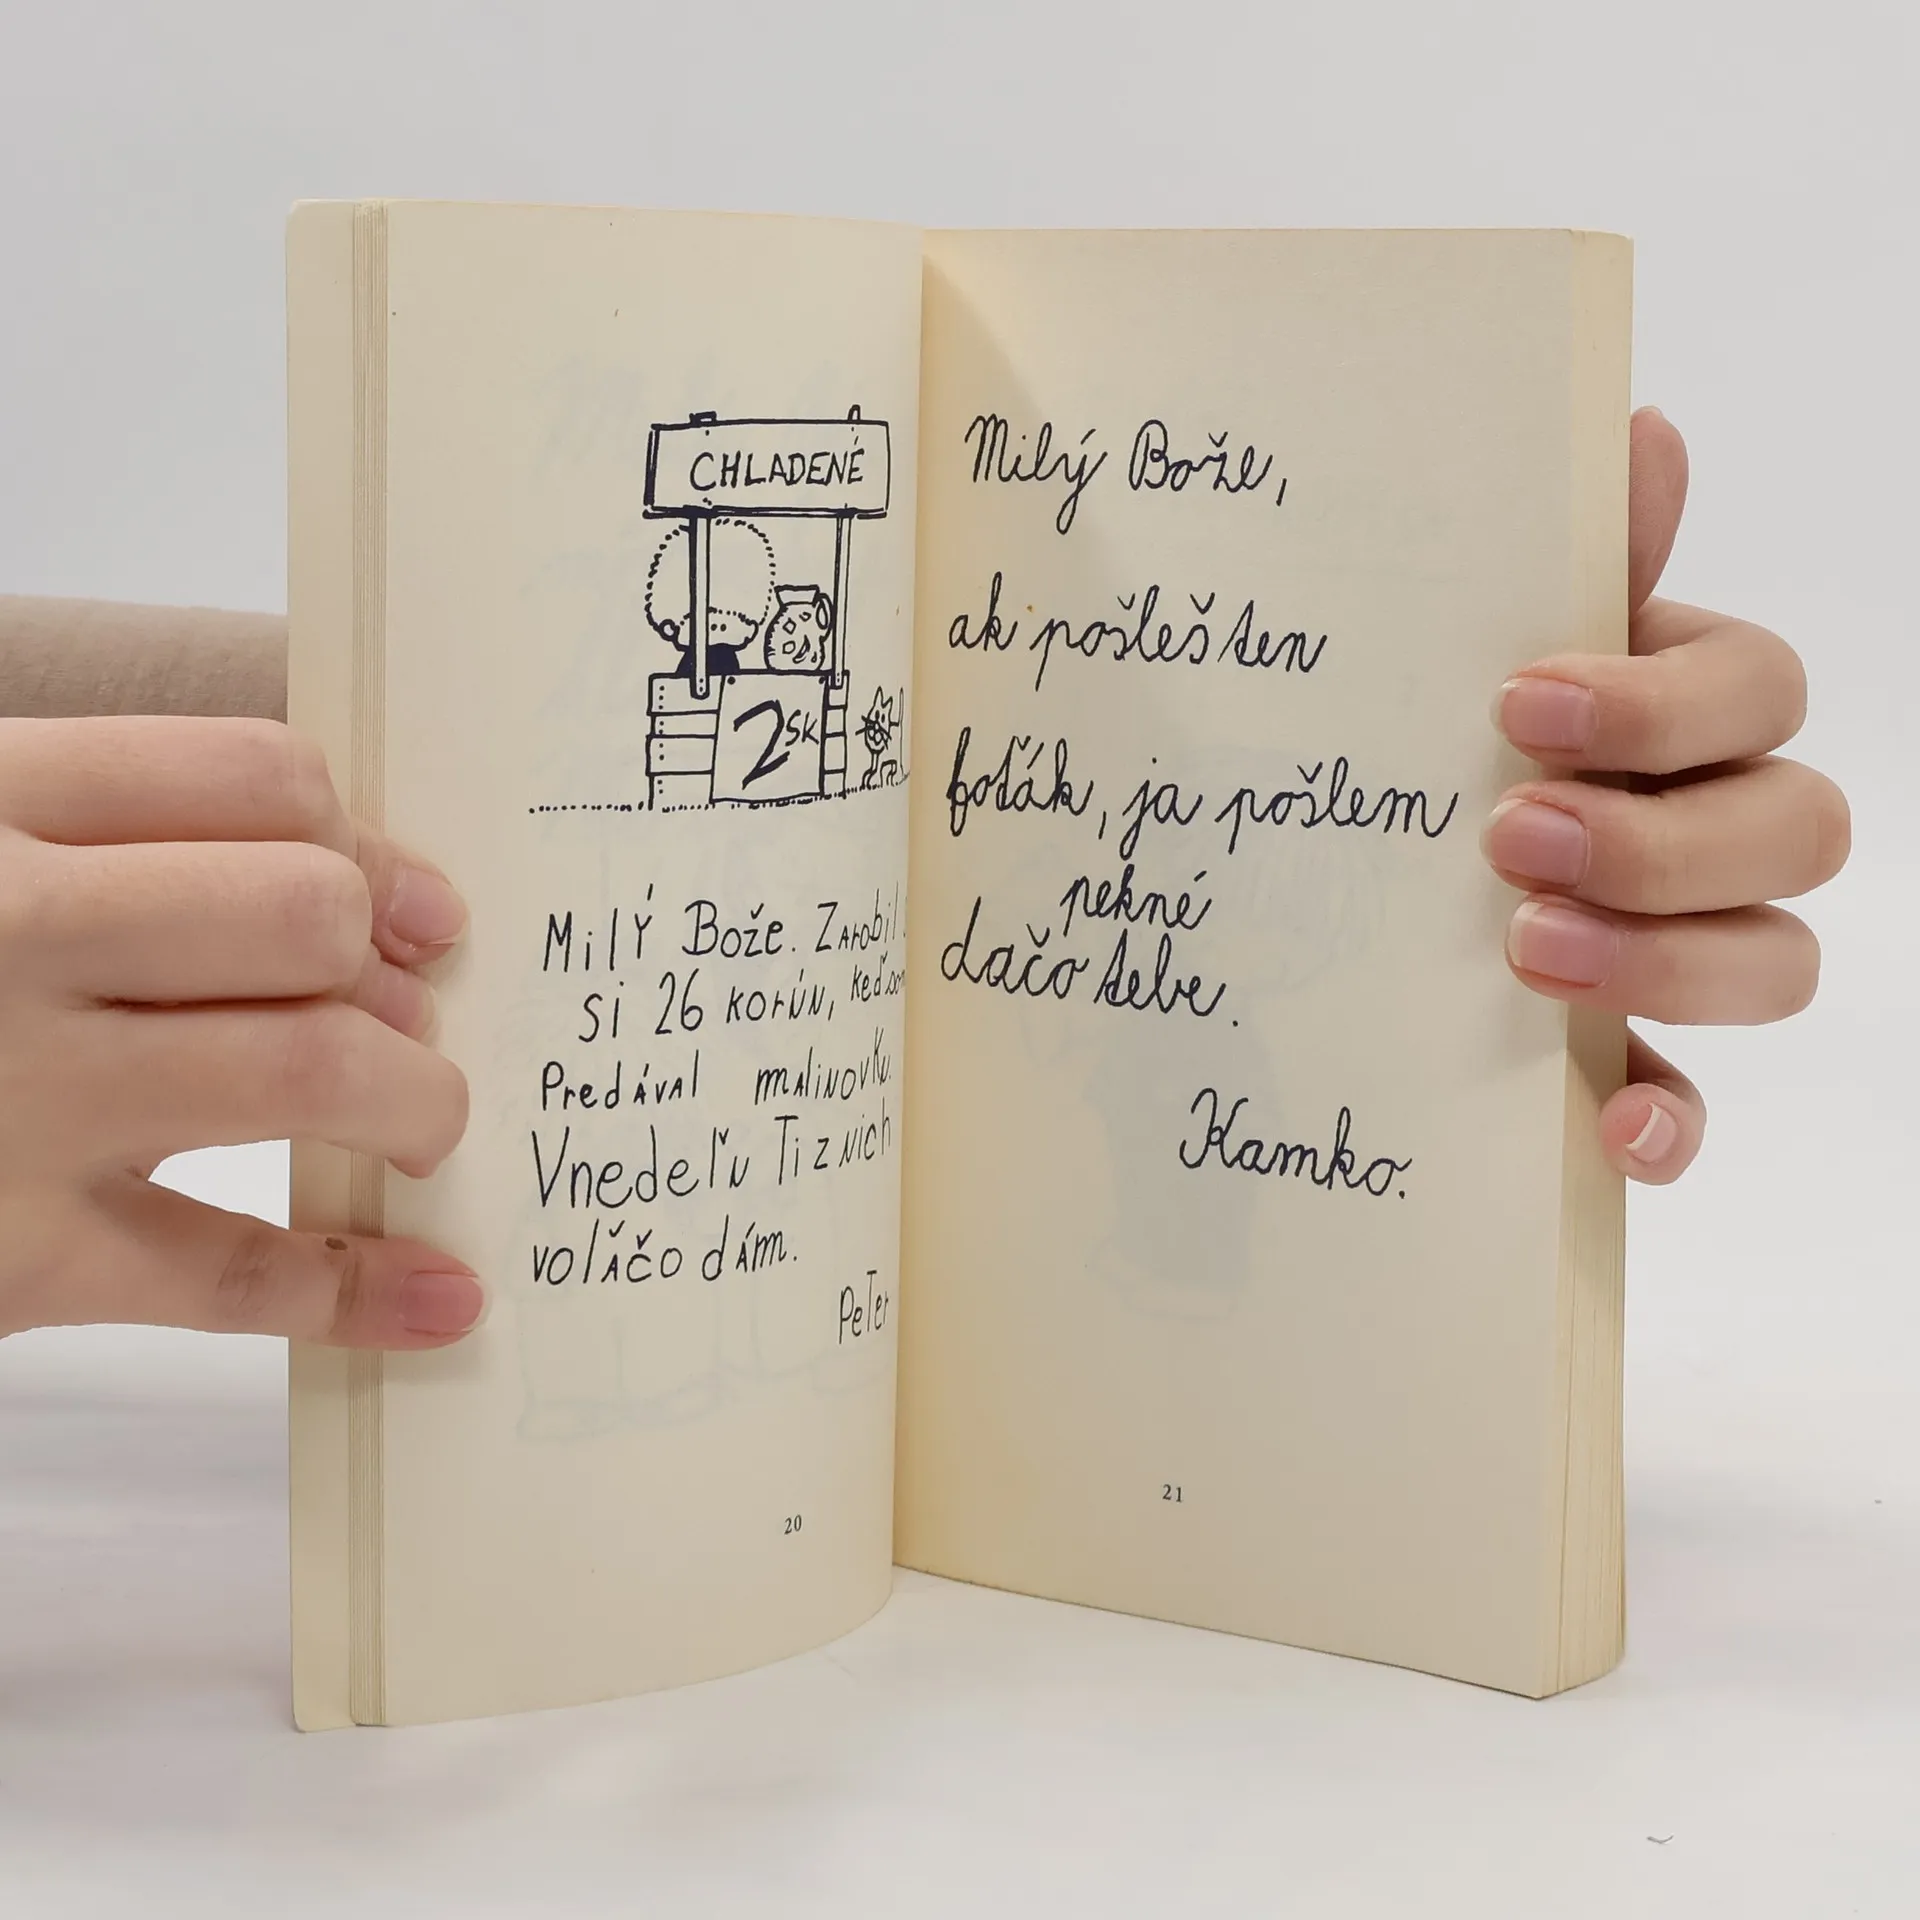 CHLADENÉ
2 SK
Milý Bože. Zarobil
si 26 korún, keď som
Predával malinovku.
Vnedeľu Ti z nich
voľačo dám.
Peter
20
Milý Bože,
ak pošleš ten
foťák, ja pošlem
pekné
dačo tebe.
Kamko.
21